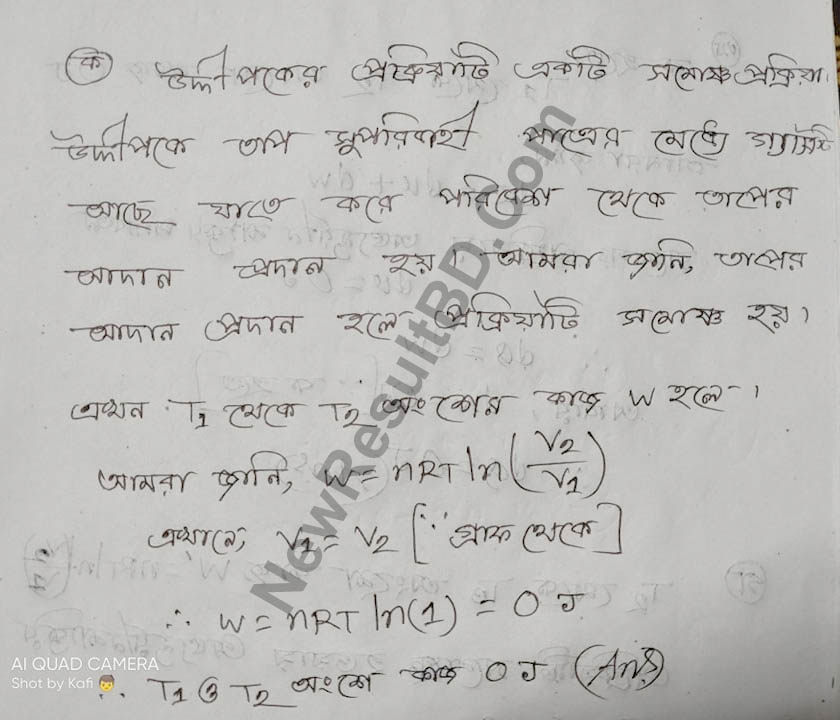 ক উদ্দীপকের প্রক্রিয়াটি একটি সমোষ্ণ প্রক্রিয়া।
উদ্দীপকে তাপ সুপরিবাহী পাত্রের মধ্যে গ্যাসটি
আছে যাতে করে পরিবেশ থেকে তাপের
আদান প্রদান হয়। আমরা জানি, তাপের
আদান প্রদান হলে প্রক্রিয়াটি সমোষ্ণ হয়।
এখন T₁ থেকে T₂ অংশের কাজ W হলে।
আমরা জানি, W = nRT ln(V₂/V₁)
এখানে, V₁ = V₂ [∵ গ্রাফ থেকে]
∴ W = nRT ln(1) = 0 J
∴ T₁ ও T₂ অংশে কাজ 0 J (Ans)
NewResultBD.Com
AI QUAD CAMERA
Shot by Kafi 👦